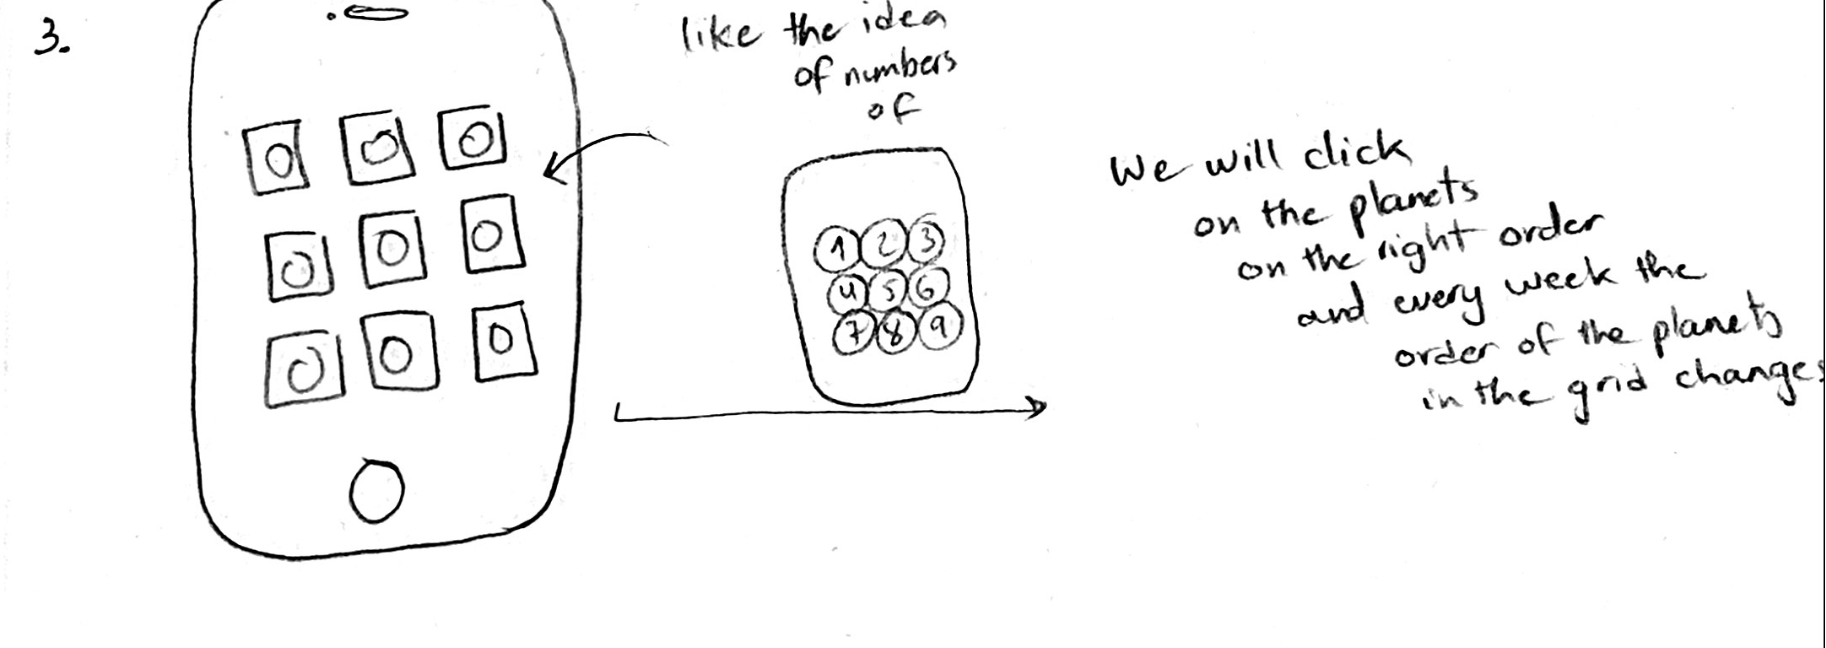 3.
like the idea
of numbers
of
1 2 3
4 5 6
7 8 9
We will click
on the planets
on the right order
and every week the
order of the planets
in the grid changes